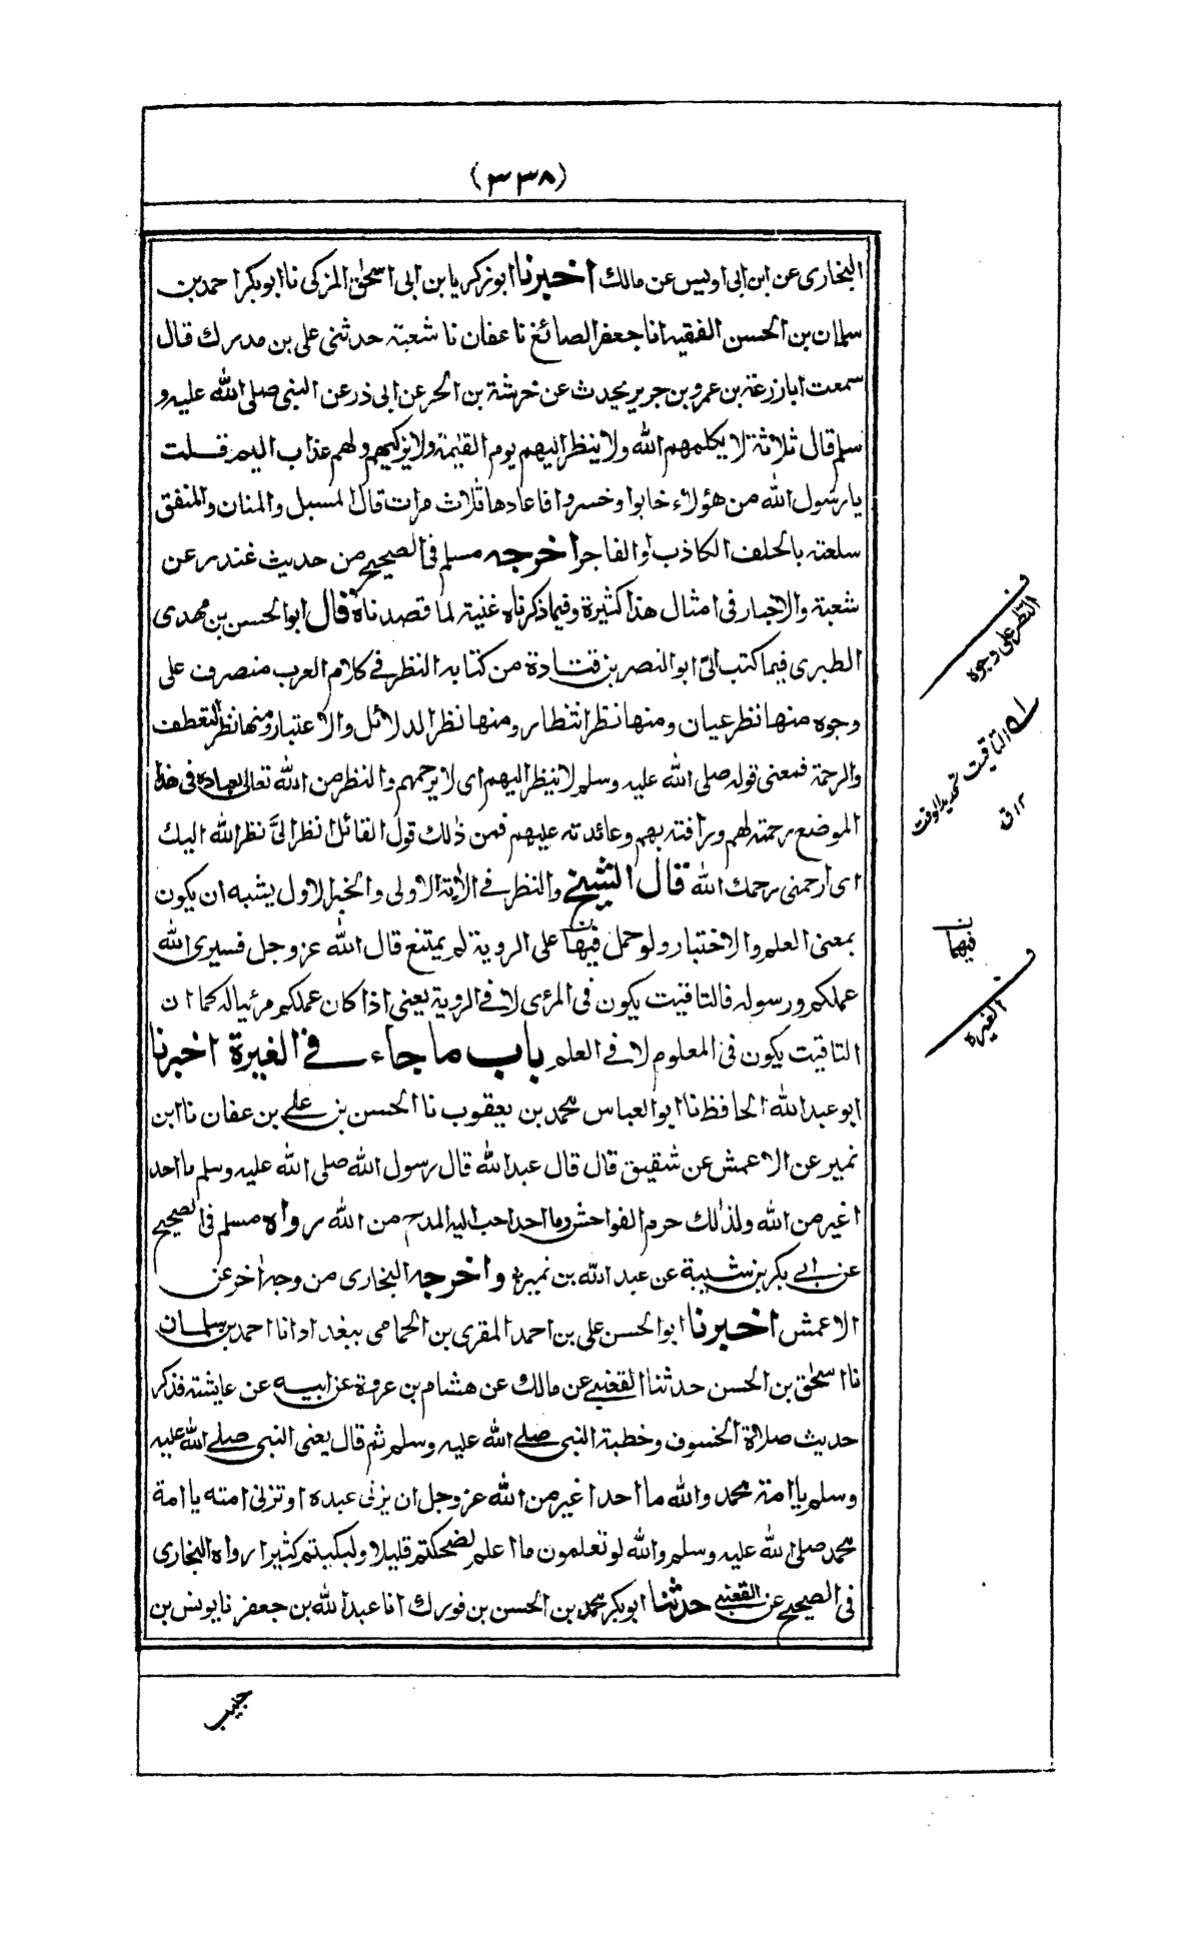 (٣٣٨)
البخارى عن ابن ابى اويس عن مالك اخبرنا ابو زكريا بن ابى اسحٰق المزكى نا ابو بكر احمد بن
سلمان بن الحسن الفقيه انا جعفر الصائغ نا عفان نا شعبة حدثنى على بن مدرك قال
سمعت ابا زرعة بن عمرو بن جرير يحدث عن خرشة بن الحر عن ابى ذر عن النبى صلى الله عليه و
سلم قال ثلاثة لا يكلمهم الله ولا ينظر اليهم يوم القيٰمة ولا يزكيهم ولهم عذاب اليم قلت
يا رسول الله من هؤلاء خابوا وخسروا فاعادها ثلاث مرات قال المسبل والمنان والمنفق
سلعته بالحلف الكاذب او الفاجر اخرجه مسلم فى الصحيح من حديث غندر عن
شعبة والاخبار فى امثال هذا كثيرة وفيما ذكرناه غنية لما قصدناه قال ابو الحسن بن مهدى
الطبرى فيما كتب الىّ ابو النصر بن قتادة من كتابه النظر فى كلام العرب منصرف على
وجوه منها نظر عيان ومنها نظر انتظار ومنها نظر الدلائل والاعتبار ومنها نظر التعطف
والرحمة فمعنى قوله صلى الله عليه وسلم لا ينظر اليهم اى لا يرحمهم والنظر من الله تعالى لعباده فى هذا
الموضع رحمته لهم ورافته بهم وعائدته عليهم فمن ذٰلك قول القائل انظر الىّ نظر الله اليك
اى ارحمنى رحمك الله قال الشيخ والنظر فى الاٰية الاولى والخبر الاول يشبه ان يكون
بمعنى العلم والاختبار ولو حمل فيهما على الروية لم يمتنع قال الله عز وجل فسيرى الله
عملكم ورسوله فالتاقيت يكون فى المرئى لا فى الروية يعنى اذا كان عملكم مرئيا له كما ان
التاقيت يكون فى المعلوم لا فى العلم باب ما جاء فى الغيرة اخبرنا
ابو عبد الله الحافظ نا ابو العباس محمد بن يعقوب نا الحسن بن على بن عفان نا ابن
نمير عن الاعمش عن شقيق قال قال عبد الله قال رسول الله صلى الله عليه وسلم ما احد
اغير من الله ولذٰلك حرم الفواحش وما احد احب اليه المدح من الله رواه مسلم فى الصحيح
عن ابى بكر بن شيبة عن عبد الله بن نمير واخرجه البخارى من وجه اٰخر عن
الاعمش اخبرنا ابو الحسن على بن احمد المقرى بن الحمامى ببغداد انا احمد بن سلمان
نا اسحٰق بن الحسن حدثنا القعنبى عن مالك عن هشام بن عروة عن ابيه عن عايشة فذكر
حديث صلاة الخسوف وخطبة النبى صلى الله عليه وسلم ثم قال يعنى النبى صلى الله عليه
وسلم يا امة محمد والله ما احد اغير من الله عز وجل ان يزنى عبده او تزنى امته يا امة
محمد صلى الله عليه وسلم والله لو تعلمون ما اعلم لضحكتم قليلا ولبكيتم كثيرا رواه البخارى
فى الصحيح عن القعنبى حدثنا ابو بكر محمد بن الحسن بن فورك انا عبد الله بن جعفر نا يونس بن
النظر على وجوه
التاقيت تحديد الاوقت
١٢ ق
فيهما ن
الغيرة
حبيب